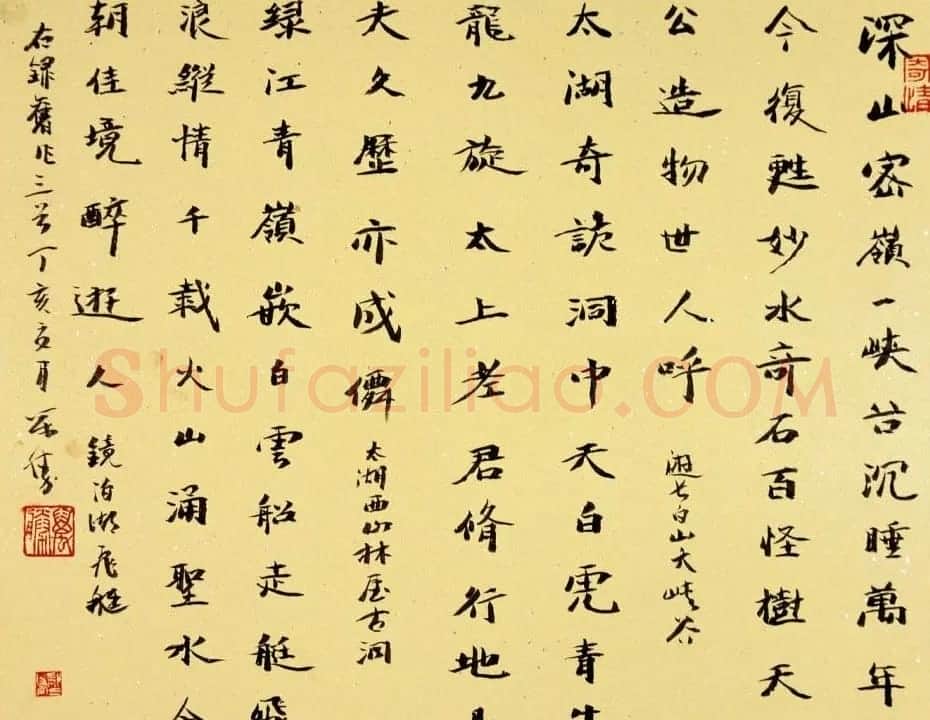 深山密嶺一峽谷沉睡萬年
今復甦妙水奇石百怪樹天
公造物世人呼 遊長白山大峽谷
太湖奇詭洞中天白虎青牛
龍九旋太上老君脩行地
夫久歷亦成僊 太湖西山林屋古洞
綠江青嶺嵌白雲船走艇飛
浪縱情千載火山涌聖水今
朝佳境醉遊人 鏡泊湖飛艇
右錄舊作三首丁亥
奇情
Shufaziliao.COM